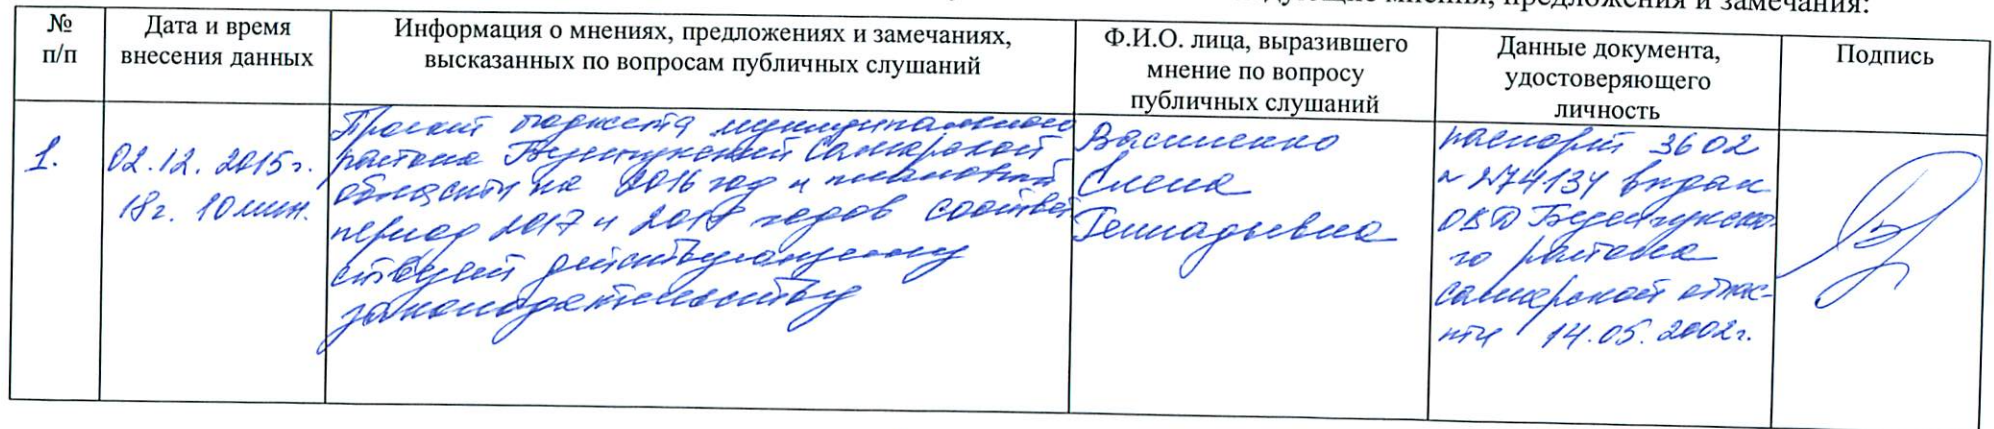 дующие мнения, предложения и замечания:
№ п/п
Дата и время
внесения данных
Информация о мнениях, предложениях и замечаниях,
высказанных по вопросам публичных слушаний
Ф.И.О. лица, выразившего
мнение по вопросу
публичных слушаний
Данные документа,
удостоверяющего
личность
Подпись
1.
02.12.2015г.
18г. 10 мин.
Проект бюджета муниципального
района Безенчукский Самарской
области на 2016 год и плановый
период 2017 и 2018 годов соответ
ствует действующему
законодательству
Василенко
Елена
Геннадьевна
паспорт 3602
№ 274134 выдан
ОВД Безенчукско-
го района
Самарской облас-
ти 14.05.2002г.